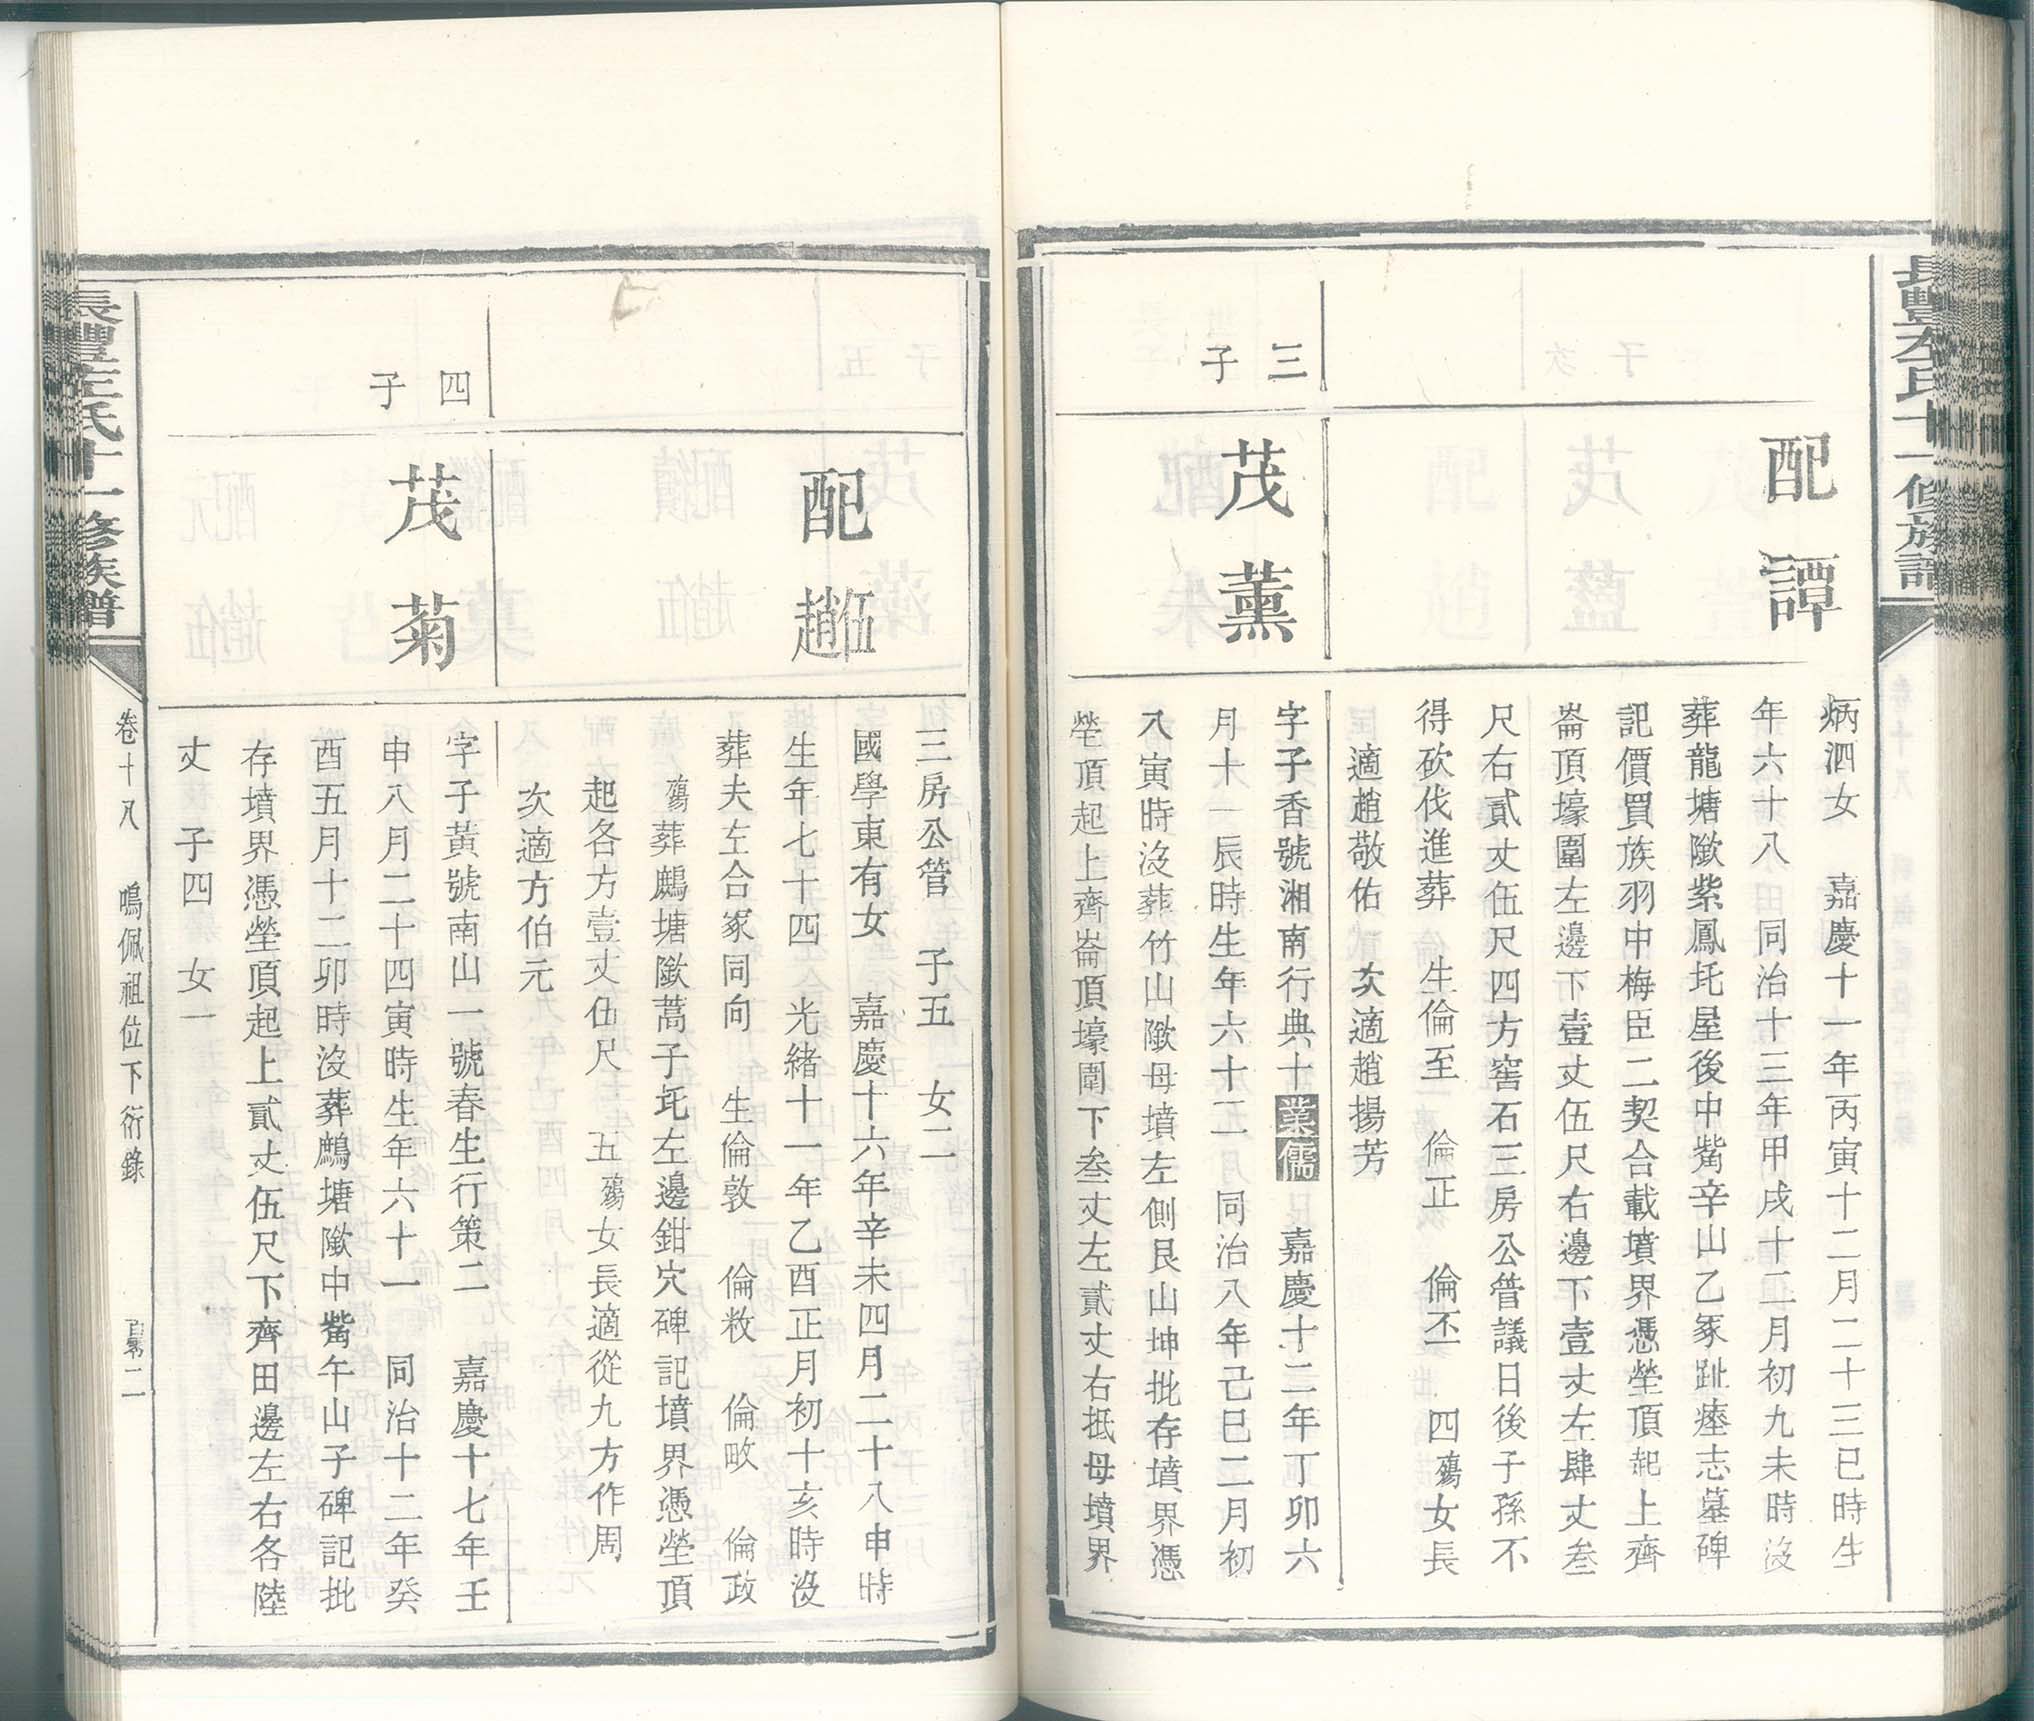 長豐左氏十一修族譜
配譚
炳泗女　嘉慶十一年丙寅十二月二十三巳時生
年六十八　同治十三年甲戌十二月初九未時沒
葬龍塘隞紫鳳坉屋後中觜辛山乙豖趾瘞志墓碑
記價買族羽中梅臣二契合載墳界憑塋頂起上齊
崙頂壕圍左邊下壹丈伍尺右邊下壹丈左肆丈叁
尺右貳丈伍尺四方窖石三房公管議日後子孫不
得砍伐進葬　生倫至　倫正　倫丕　四殤女長
適趙敬佑　次適趙揚芳
三子
茂薰
字子香號湘南行典十業儒　嘉慶十二年丁卯六
月十一辰時生年六十二　同治八年己巳二月初
八寅時沒葬竹山隞母墳左側艮山坤批存墳界憑
塋頂起上齊崙頂壕圍下叁丈左貳丈右抵母墳界
三房公管　子五　女二
配趙伍
國學東有女　嘉慶十六年辛未四月二十八申時
生年七十四　光緒十一年乙酉正月初十亥時沒
葬夫左合冢同向　生倫敦　倫敉　倫畋　倫政
殤葬鷓塘隞蒿子坉左邊鉗穴碑記墳界憑塋頂
起各方壹丈伍尺　五殤女長適從九方作周
次適方伯元
四子
茂菊
字子黃號南山一號春生行策二　嘉慶十七年壬
申八月二十四寅時生年六十一　同治十二年癸
酉五月十二卯時沒葬鷓塘隞中觜午山子碑記批
存墳界憑塋頂起上貳丈伍尺下齊田邊左右各陸
丈　子四　女一
長豐左氏十一修族譜
卷十八　鳴佩祖位下衍錄